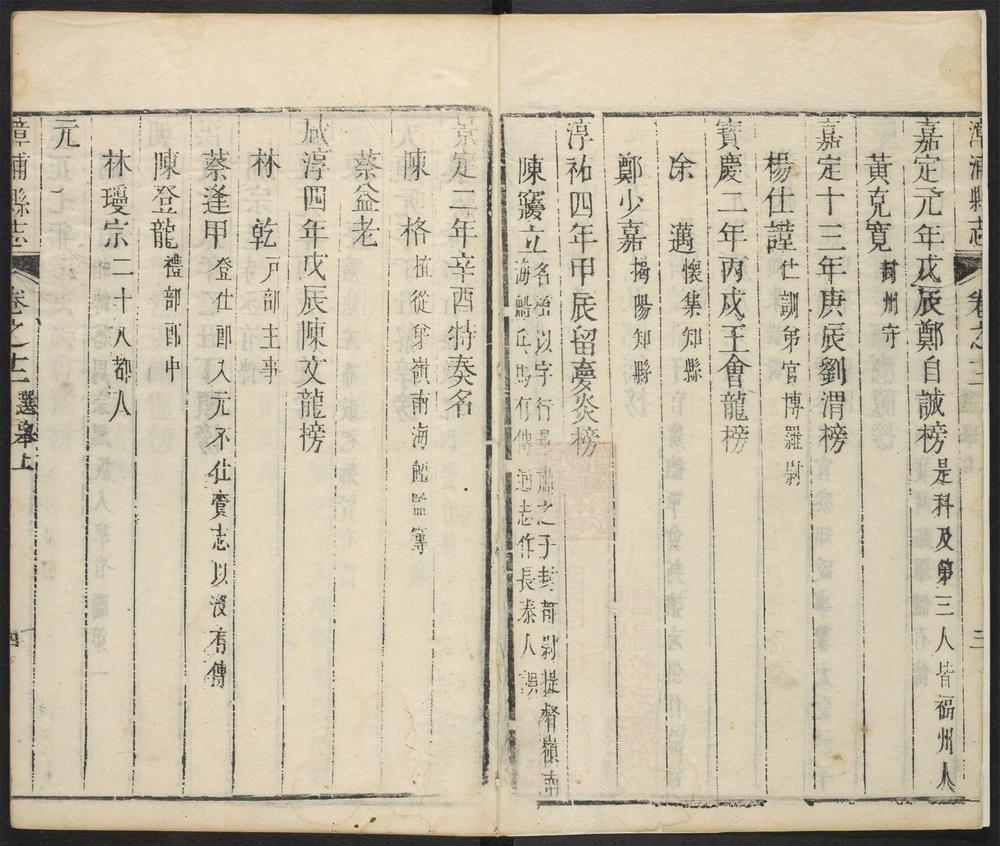 漳浦縣志 卷之十二 三
嘉定元年戊辰鄭自誠榜 是科及第三人皆福州人
黃克寬 封州守
嘉定十三年庚辰劉渭榜
楊仕謹 仕訓第官博羅尉
寶慶二年丙戌王會龍榜
余 邁 懷集知縣
鄭少嘉 揭陽知縣
淳祐四年甲辰留夢炎榜
陳窽立 名 以字行 肅之子封 尉提督嶺南
海 兵馬有傳 志作長泰人誤
景定二年辛酉特奏名
陳 格 植從 嶺南海 監簿
蔡益老
咸淳四年戊辰陳文龍榜
林 乾 戶部主事
蔡逢甲 登仕郎入元不仕賫志以沒有傳
陳登龍 禮部郎中
林璦宗 二十八都人
元
漳浦縣志 卷之十二 選舉上 四